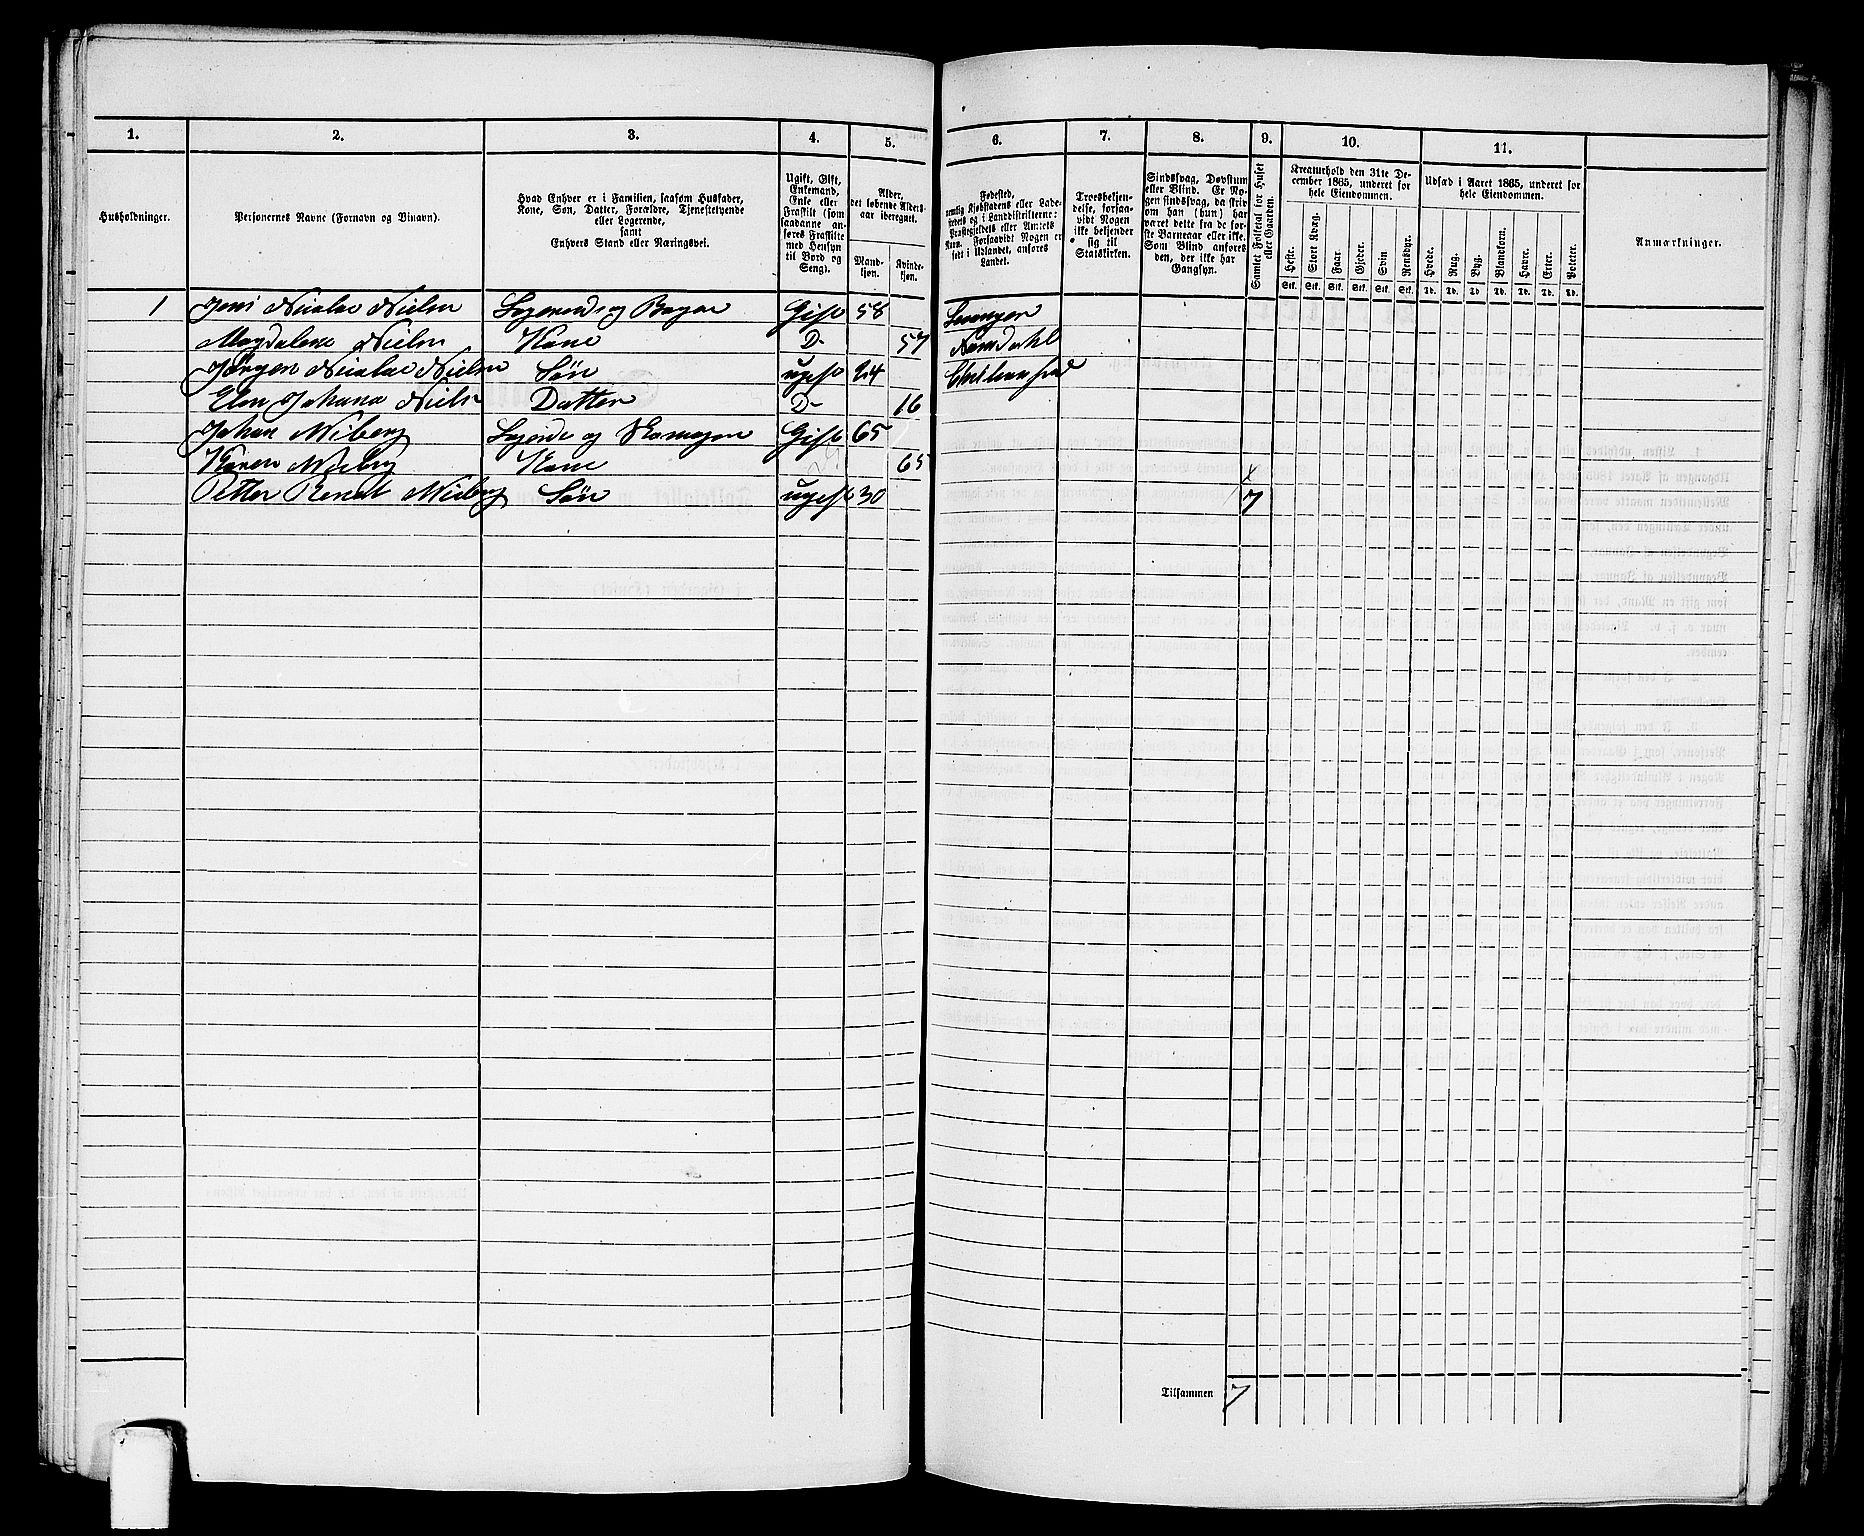 1. 2. 3. 4. 5. 6. 7. 8. 9. 10. 11.
Husholdninger.
Personernes Navne (Fornavn og Binavn).
Hvad Enhver er i Familien, saasom Husfader,
Kone, Søn, Datter, Forældre, Tjenestetyende
eller Logerende,
samt
Enhvers Stand eller Næringsvei.
Ugift, Gift,
Enkemand,
Enke eller
Fraskilt (som
saadanne an-
føres Fraskilte
med Hensyn
til Bord og
Seng).
Alder,
det løbende Alders-
aar iberegnet.
Mand-
kjøn.
Kvinde-
kjøn.
Fødested,
nemlig Kjøbstadens eller Lade-
stedets og i Landdistrikterne:
Præstegjeldets eller Amtets
Navn. Forsaavidt Nogen er
født i Udlandet, anføres
Landet.
Troesbekjen-
delse, forsaa-
vidt Nogen
ikke bekjender
sig til
Statskirken.
Sindssvag, Døvstum
eller Blind. Er No-
gen sindssvag, da skriv
om han (hun) har
været dette fra de før-
ste Barneaar eller ikke.
Som Blind anføres
den, der ikke har
Gangsyn.
Samlet Folketal for Huset
eller Gaarden.
Kreaturhold den 31te De-
cember 1865, underet for
hele Eiendommen.
Heste. Stort Kvæg. Faar. Gjeder. Svin Rensdyr.
Stk. Stk. Stk. Stk. Stk. Stk.
Udsæd i Aaret 1865, underet for
hele Eiendommen.
Hvede. Rug. Byg. Blandkorn. Havre. Erter. Poteter.
Td. Td. Td Td. Td. Td. Td.
Anmærkninger.
1 Jens Nicolai Nielsen Logerende og Bager Gift 58 Levanger
Magdalena Nielsen Kone D- 57 Namdahl
Jørgen Nicolai Nielsen Søn ugift 24 Christiansund
Elen Johana Nielsen Datter D- 16
Johan Wiberg Logerde og Skomager Gift 65
Karen Wiberg Kone D. 65 x
Petter Bendt Wiberg Søn ugift 30 7
Tilsammen 7